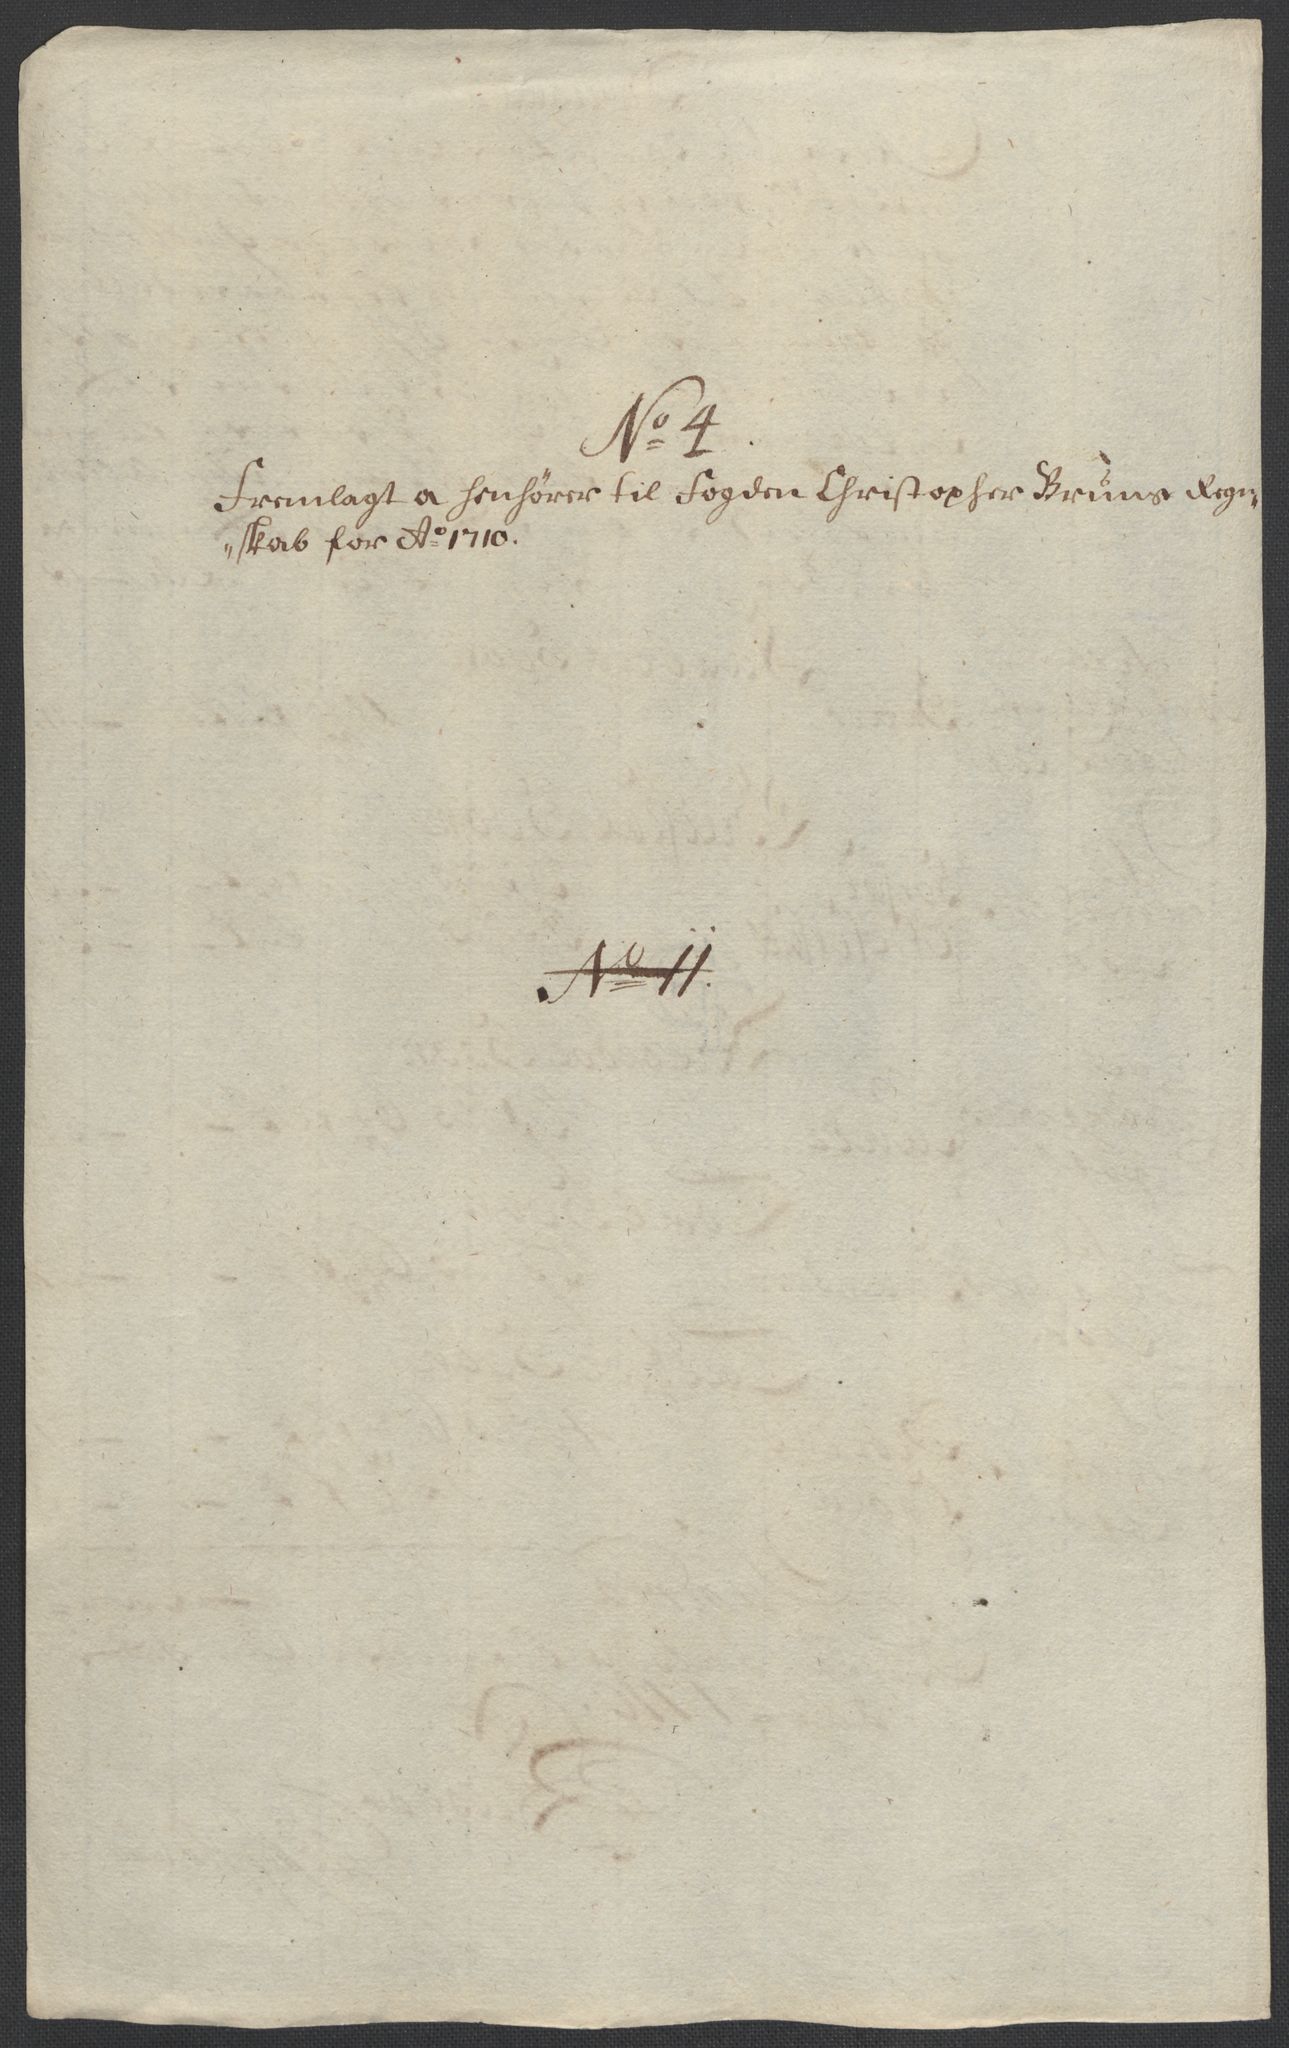 No 4
Fremlagt a henhører til Fogden Christopher Bruns Regn„
„skab for Ao 1710.
No 11.